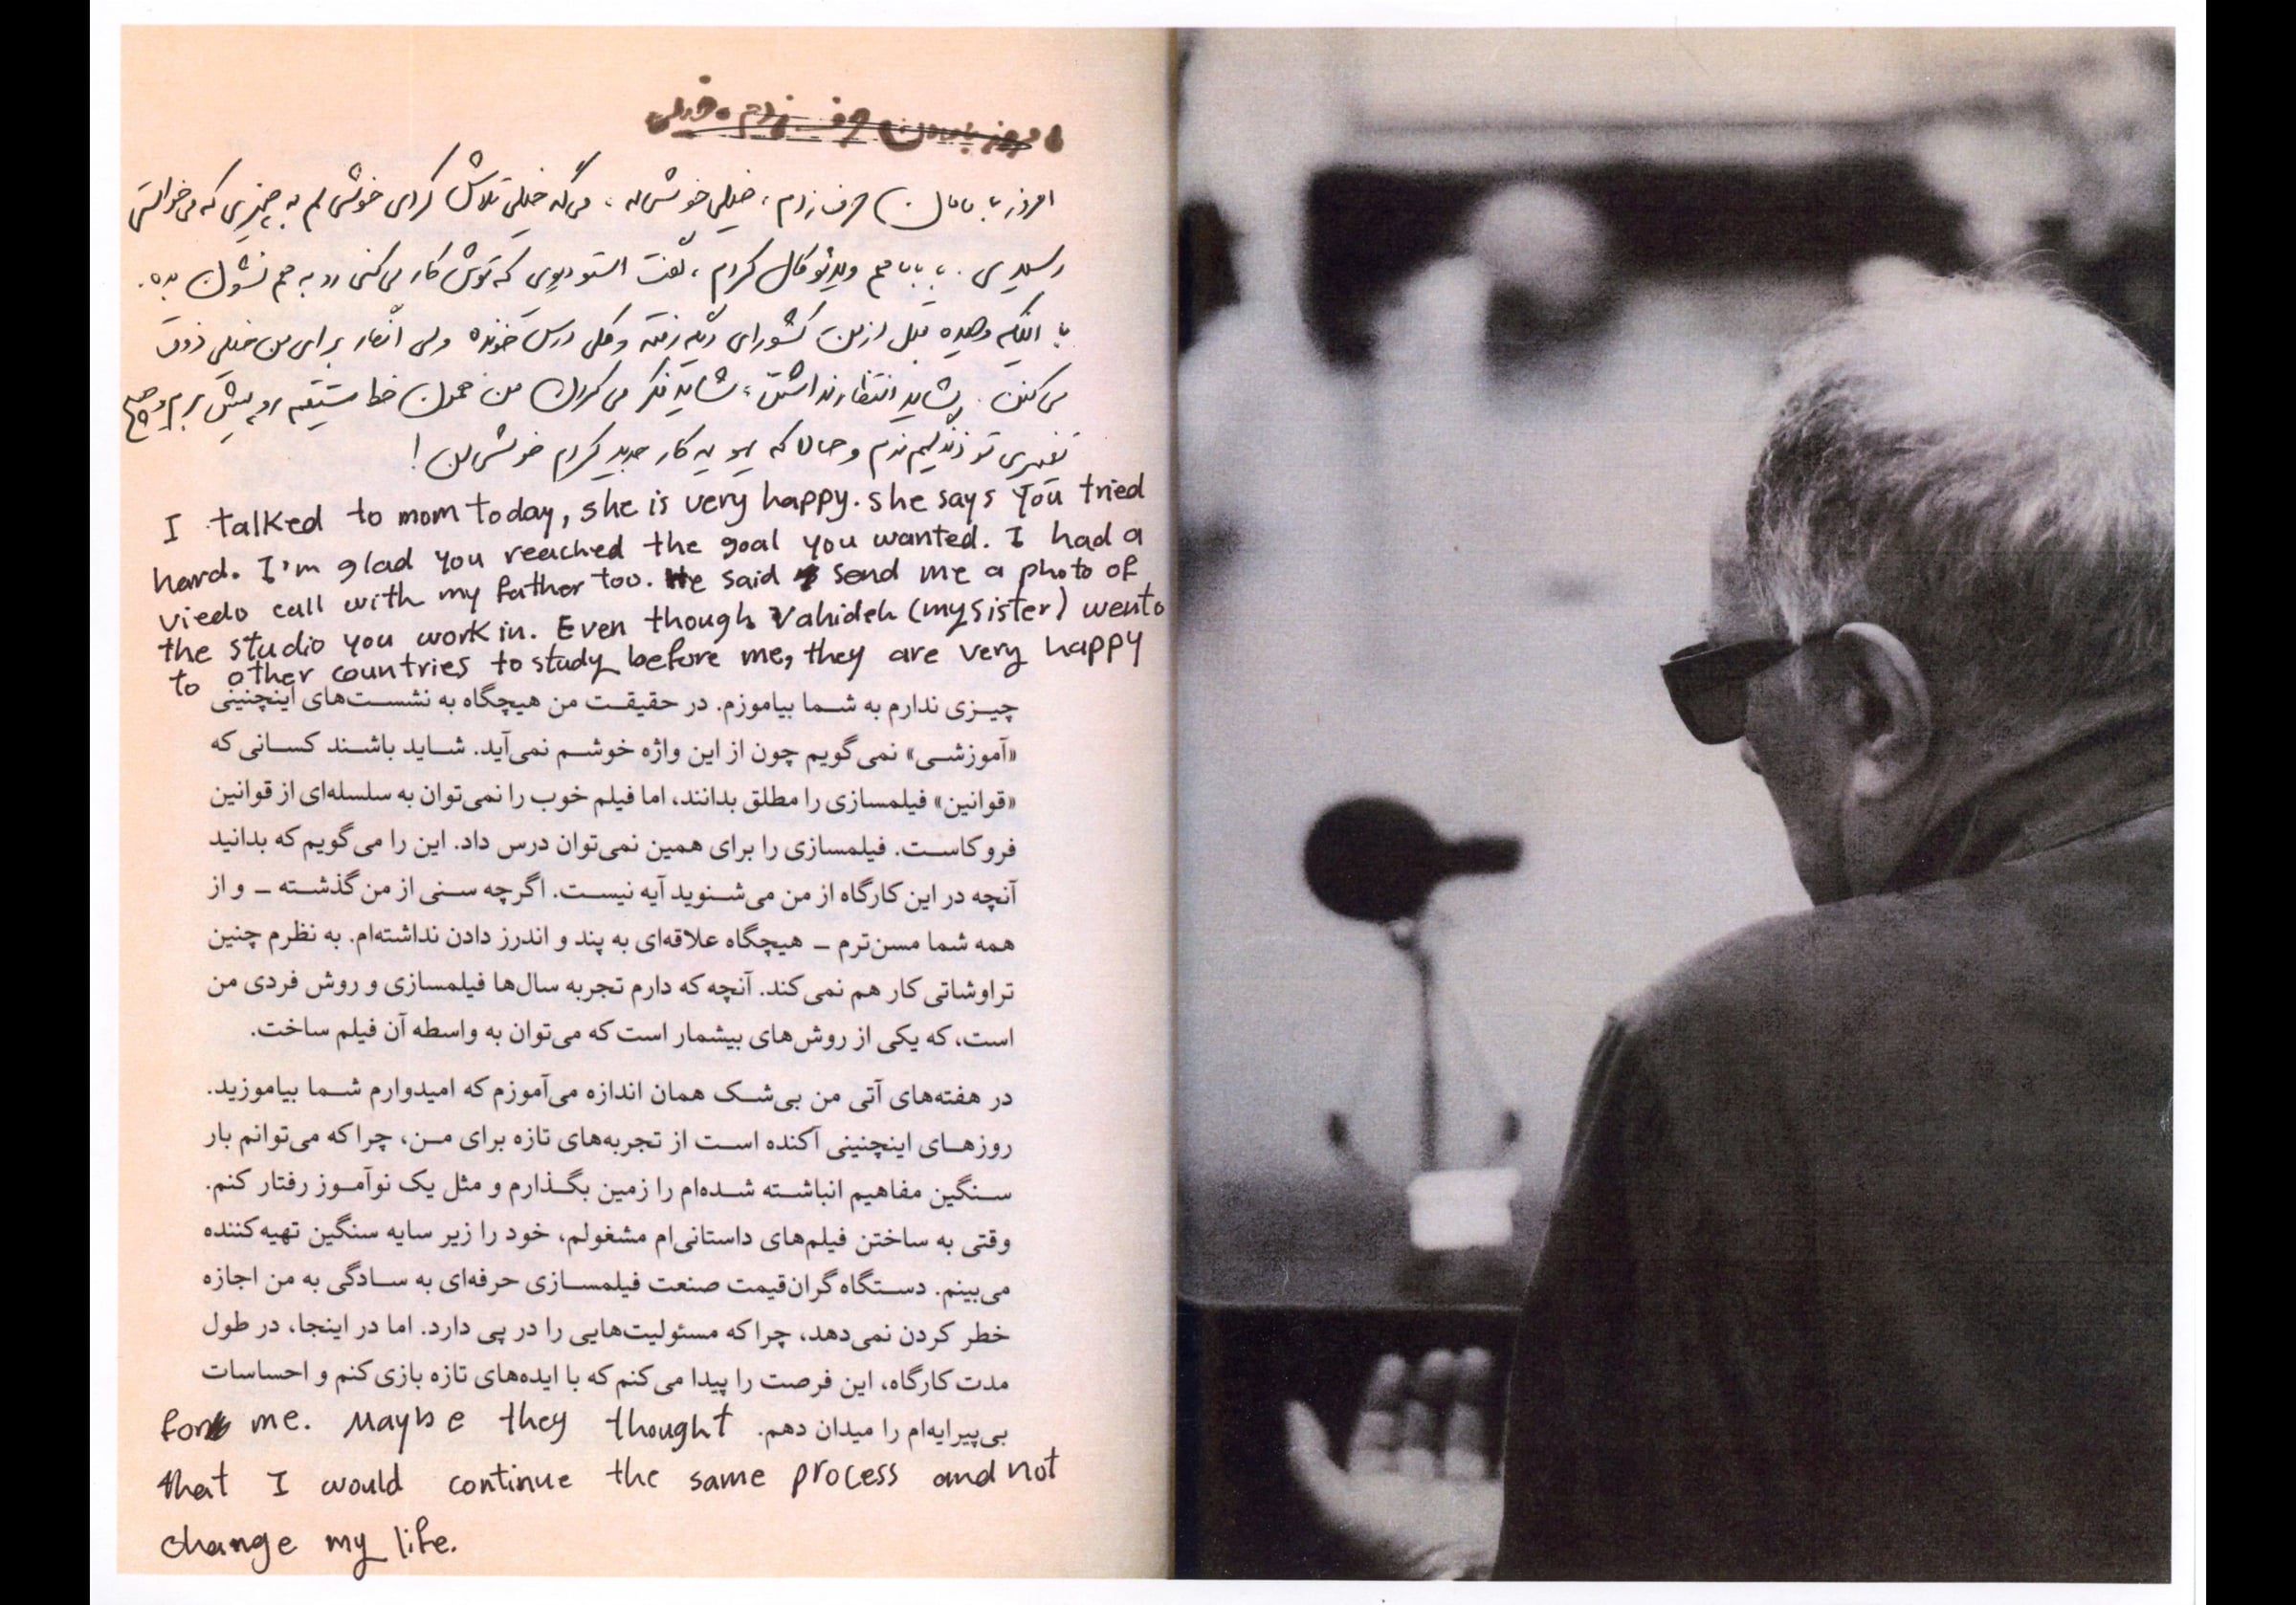 امروز با مامان حرف زدم ، خیلی
امروز با مامان حرف زدم ، خیلی خوشحاله ، می‌گه خیلی تلاش کردی خوشحالم به چیزی که می‌خواستی
رسیدی . با بابا هم ویدئو کال کردم ، گفت استودیوی که توش کار می‌کنی رو به هم نشون بده .
با اینکه وحیده قبل از من کشورای دیگه رفته و کلی درس خونده ولی انگار برای من خیلی ذوق
می‌کنن . شاید انتظار نداشتن ، شاید فکر می‌کردن من همون خط مستقیم رو پیش برم و هیچ
تغییری تو زندگیم ندم و حالا که یهو یه کار جدید کردم خوشحالن !
I talked to mom today, she is very happy. she says you tried
hard. I'm glad you reached the goal you wanted. I had a
viedo call with my father too. He said send me a photo of
the studio you work in. Even though Vahideh (my sister) went
to other countries to study before me, they are very happy
چیزی ندارم به شما بیاموزم. در حقیقت من هیچگاه به نشست‌های اینچنینی
«آموزشی» نمی‌گویم چون از این واژه خوشم نمی‌آید. شاید باشند کسانی که
«قوانین» فیلمسازی را مطلق بدانند، اما فیلم خوب را نمی‌توان به سلسله‌ای از قوانین
فروکاست. فیلمسازی را برای همین نمی‌توان درس داد. این را می‌گویم که بدانید
آنچه در این کارگاه از من می‌شنوید آیه نیست. اگرچه سنی از من گذشته – و از
همه شما مسن‌ترم – هیچگاه علاقه‌ای به پند و اندرز دادن نداشته‌ام. به نظرم چنین
تراوشاتی کار هم نمی‌کند. آنچه که دارم تجربه سال‌ها فیلمسازی و روش فردی من
است، که یکی از روش‌های بیشمار است که می‌توان به واسطه آن فیلم ساخت.
در هفته‌های آتی من بی‌شک همان اندازه می‌آموزم که امیدوارم شما بیاموزید.
روزهای اینچنینی آکنده است از تجربه‌های تازه برای من، چرا که می‌توانم بار
سنگین مفاهیم انباشته شده‌ام را زمین بگذارم و مثل یک نوآموز رفتار کنم.
وقتی به ساختن فیلم‌های داستانی‌ام مشغولم، خود را زیر سایه سنگین تهیه‌کننده
می‌بینم. دستگاه گران‌قیمت صنعت فیلمسازی حرفه‌ای به سادگی به من اجازه
خطر کردن نمی‌دهد، چرا که مسئولیت‌هایی را در پی دارد. اما در اینجا، در طول
مدت کارگاه، این فرصت را پیدا می‌کنم که با ایده‌های تازه بازی کنم و احساسات
بی‌پیرایه‌ام را میدان دهم.
for me. Maybe they thought
that I would continue the same process and not
change my life.